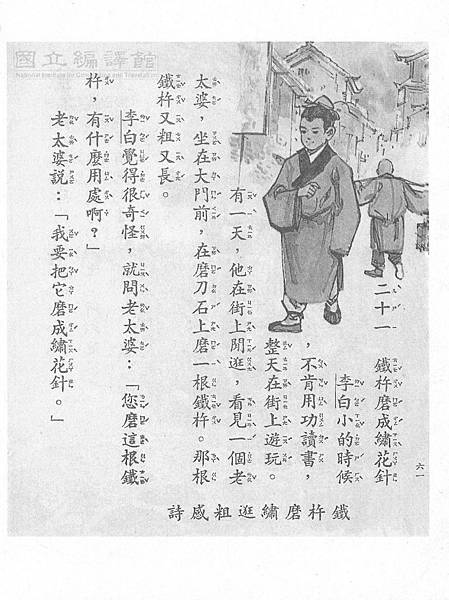 國立編譯館
National Institute for Compilation and Translation
二十一　鐵杵磨成繡花針
李白小的時候
，不肯用功讀書，
整天在街上遊玩。
有一天，他在街上閒逛，看見一個老
太婆，坐在大門前，在磨刀石上磨一根鐵杵。那根
鐵杵又粗又長。
李白覺得很奇怪，就問老太婆：「您磨這根鐵
杵，有什麼用處啊？」
老太婆說：「我要把它磨成繡花針。」
鐵杵磨繡逛粗感詩
六一